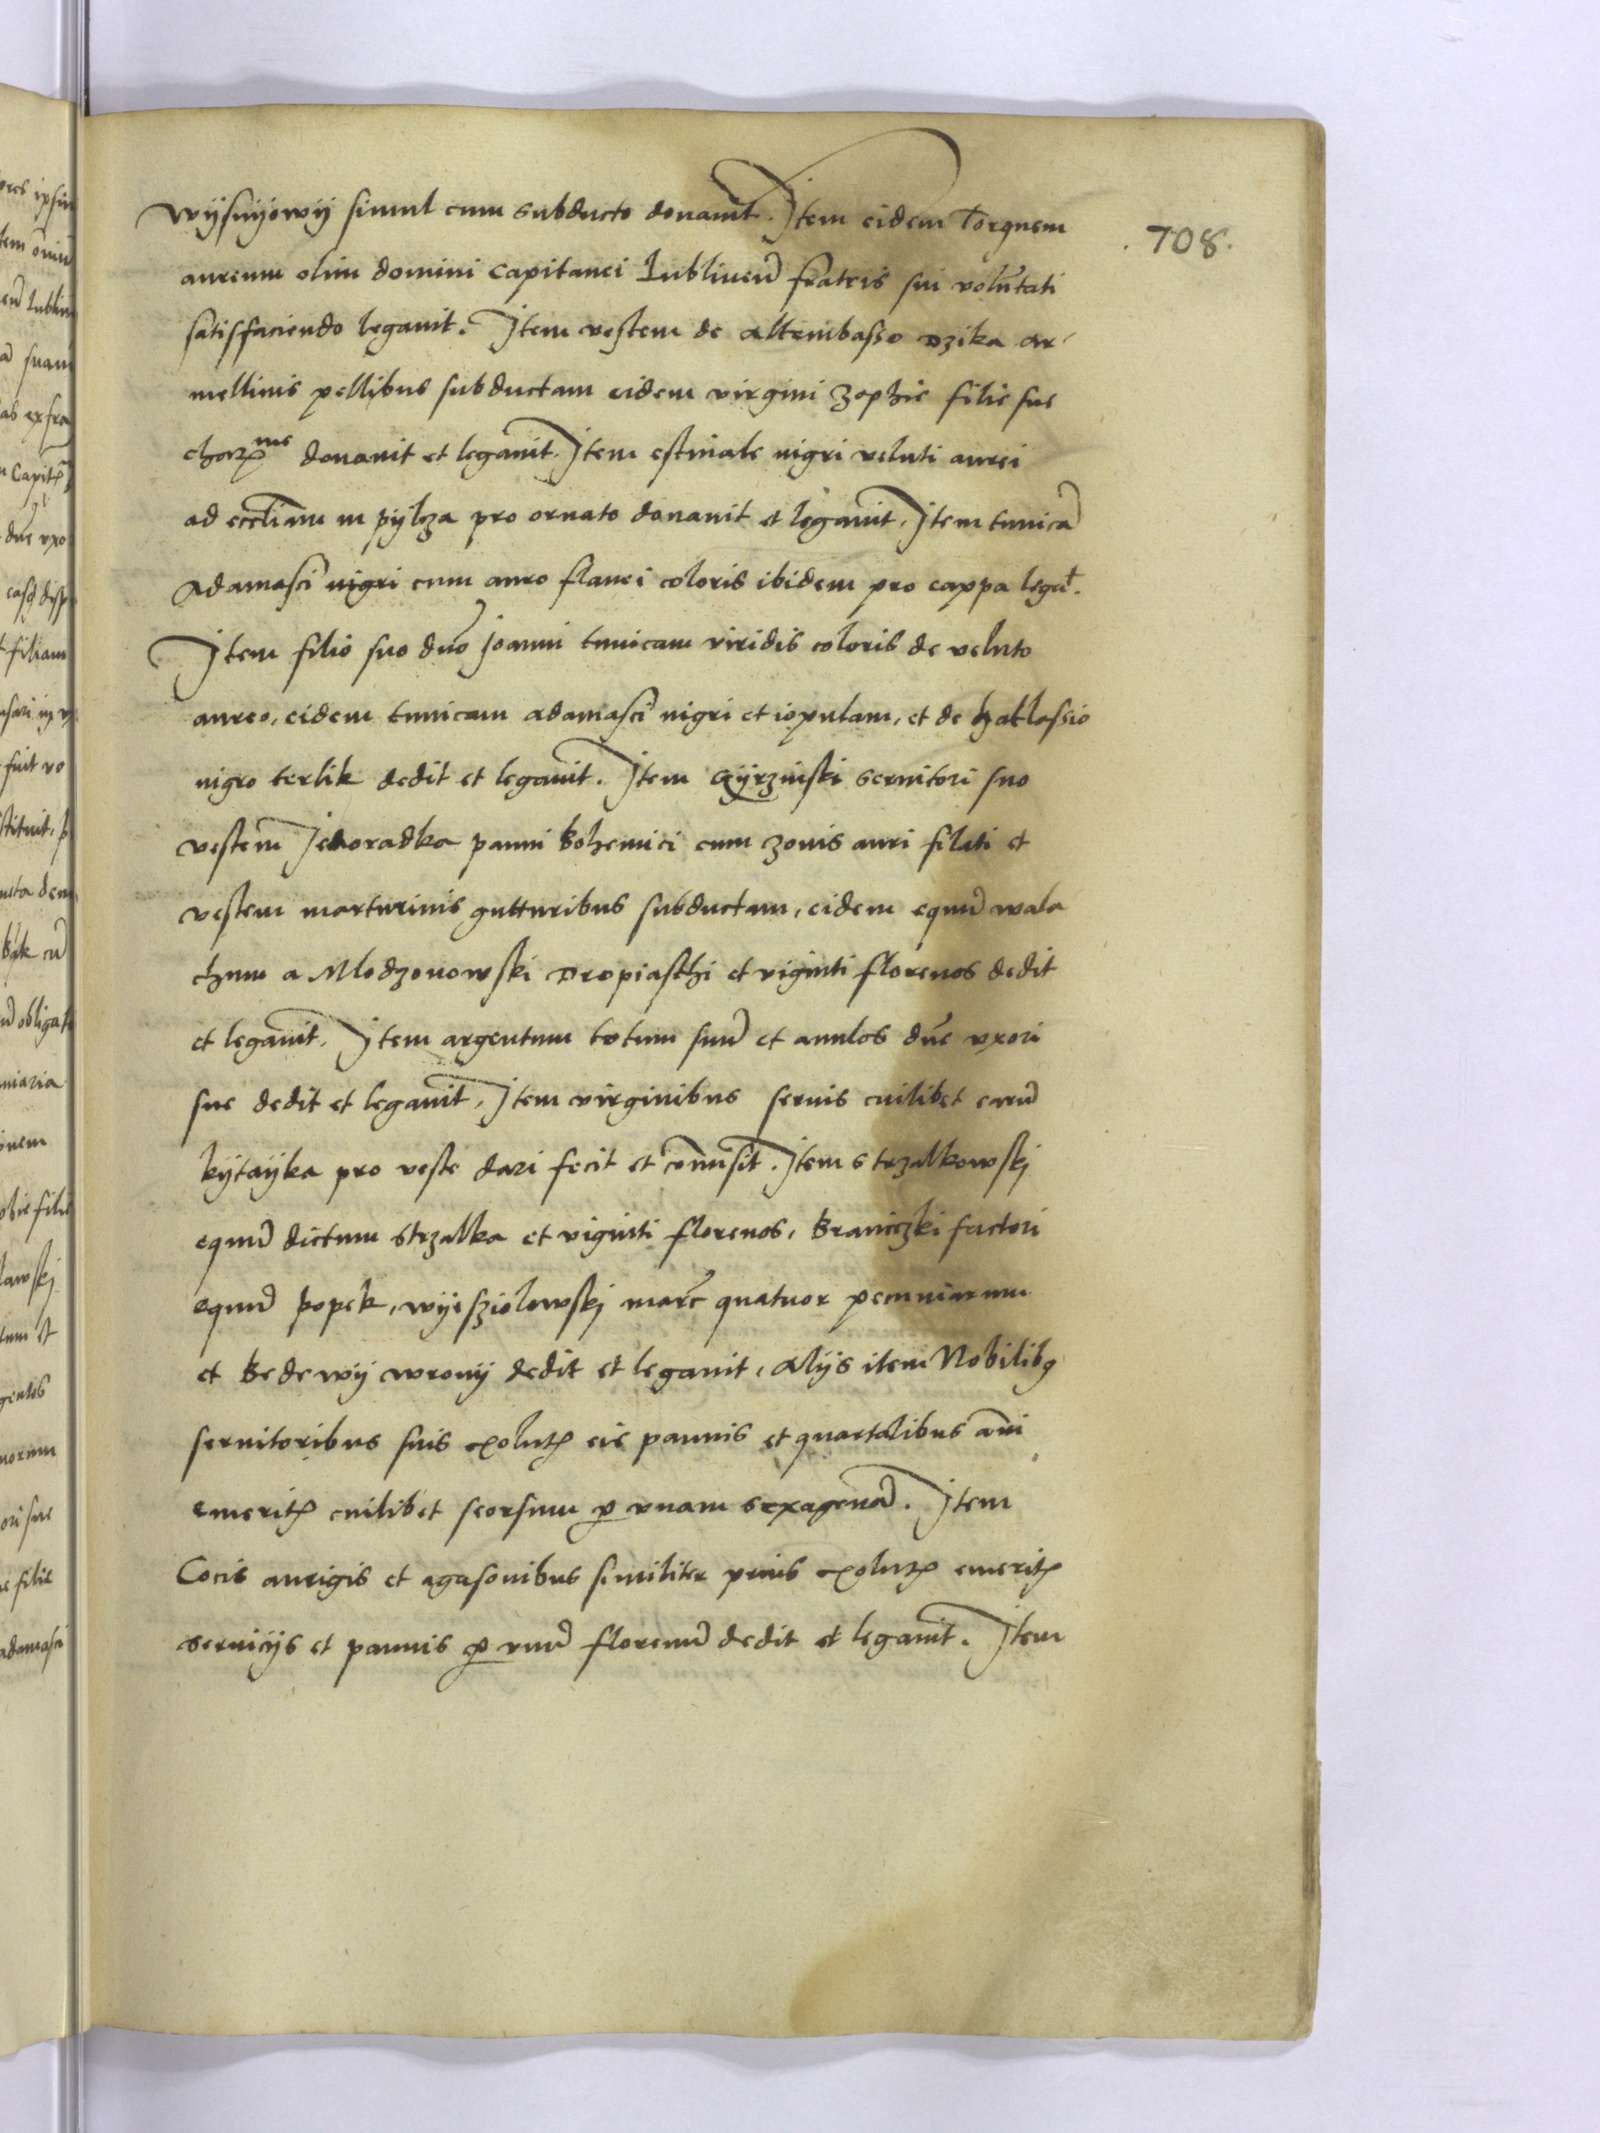 .708.
wÿsnÿowÿ simul cum subducto donauit. Item eidem Torquem
aureum olim domini capitanei Lublineñ fratris sui volu͂tati
satisfaciendo legauit. Item vestem de altembasso dzika ar
mellinis pellibus subductam eidem virgini Zophie filie sue
donauit et legauit. Item estiuale nigri veluti aurei
ad eccl̄iam in pÿlcza pro ornato donauit et legauit. Item tunicā
adamasci nigri cum auro flauei coloris ibidem pro cappa legāt.
Item filio suo dn̄o Joanni tunicam viridis coloris de veluto
aureo, eidem tunicam adamasci nigri et iopulam, et de hatlassio
nigro terlik dedit et legauit. Item seruitori suo
vestem panni bohemici cum zonis auri filati et
vestem marturinis gutturibus subductam, eidem equū wala
chum a Mlodzonowski dropiasthi et viginti florenos dedit
et legauit. Item argentum totum suū et anulos dn̄e vxori
sue dedit et legauit. Item virginibus seruis cuilibet earū
kÿtaÿka pro veste dari fecit et com̄isit. Item strzalkowskj
equū dictum strzalka et viginti florenos, braniczki factori
equū popek, wÿesziolowskj marc̄ quatuor pecuniarum
et bedewÿ wronÿ dedit et legauit, alÿs item Nobilibꝫ
seruitoribus suis exolutꝭ eis pannis et quartalibus an̄i
emeritꝭ cuilibet seorsum ꝑ vnam sexagenā. Item
Cocis aurigis et agasonibus similiter prius exolutꝭ emeritꝭ
seruicÿs et pannis ꝑ vnū florenū dedit et legauit. Item